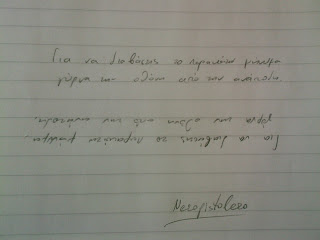 Για να διαβάσεις το παρακάτω μήνυμα
γύρνα την οθόνη από την ανάποδη.
Για να διαβάσεις το παραπάνω μήνυμα,
γύρνα την οθόνη από την ανάποδη.